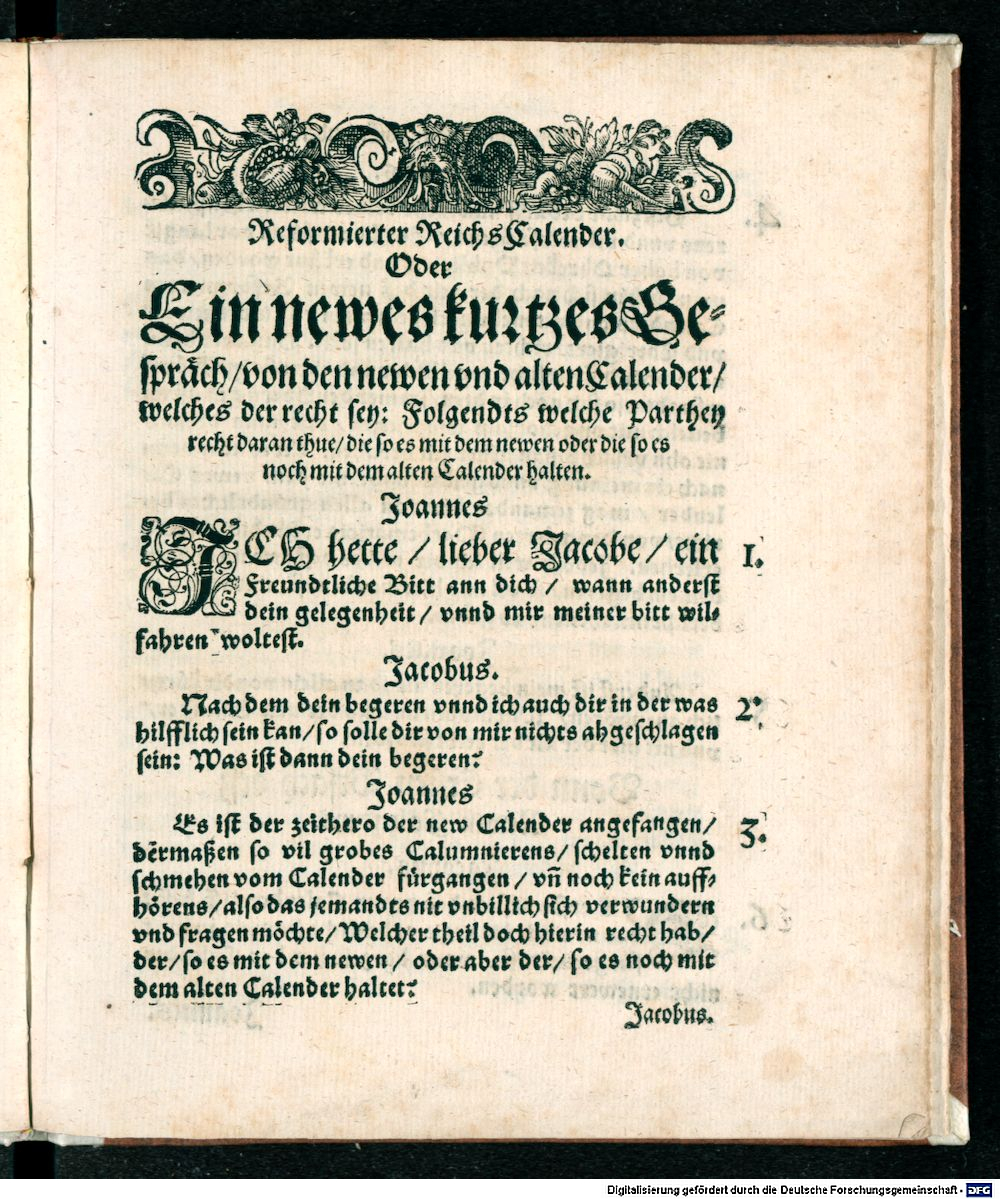 Reformierter ReichsCalender.
Oder
Ein newes kurtzes Ge-
spräch/von den newen vnd alten Calender/
welches der recht sey: Folgendts welche Parthey
recht daran thue/die so es mit dem newen oder die so es
noch mit dem alten Calender halten.
Joannes
ICH hette / lieber Jacobe / ein 1.
Freundtliche Bitt ann dich / wann anderst
dein gelegenheit / vnnd mir meiner bitt wil-
fahren woltest.
Jacobus.
Nach dem dein begeren vnnd ich auch dir in der was 2.
hilfflich sein kan/so solle dir von mir nichts abgeschlagen
sein: Was ist dann dein begeren?
Joannes
Es ist der zeithero der new Calender angefangen/ 3.
dermaßen so vil grobes Calumnierens/schelten vnnd
schmehen vom Calender fürgangen / vñ noch kein auff-
hörens/also das jemandts nit vnbillich sich verwundern
vnd fragen möchte/Welcher theil doch hierin recht hab/
der/so es mit dem newen / oder aber der/ so es noch mit
dem alten Calender haltet?
Jacobus.
Digitalisierung gefördert durch die Deutsche Forschungsgemeinschaft - DFG